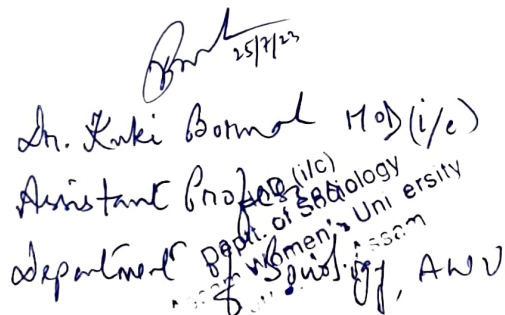 25/7/23
Dr. Kuki Bormal HOD (i/c)
Assistant Professor
Department of Sociology, AWU
HOD (i/c)
Deptt. of Sociology
Assam Women's Uni ersity
Assam